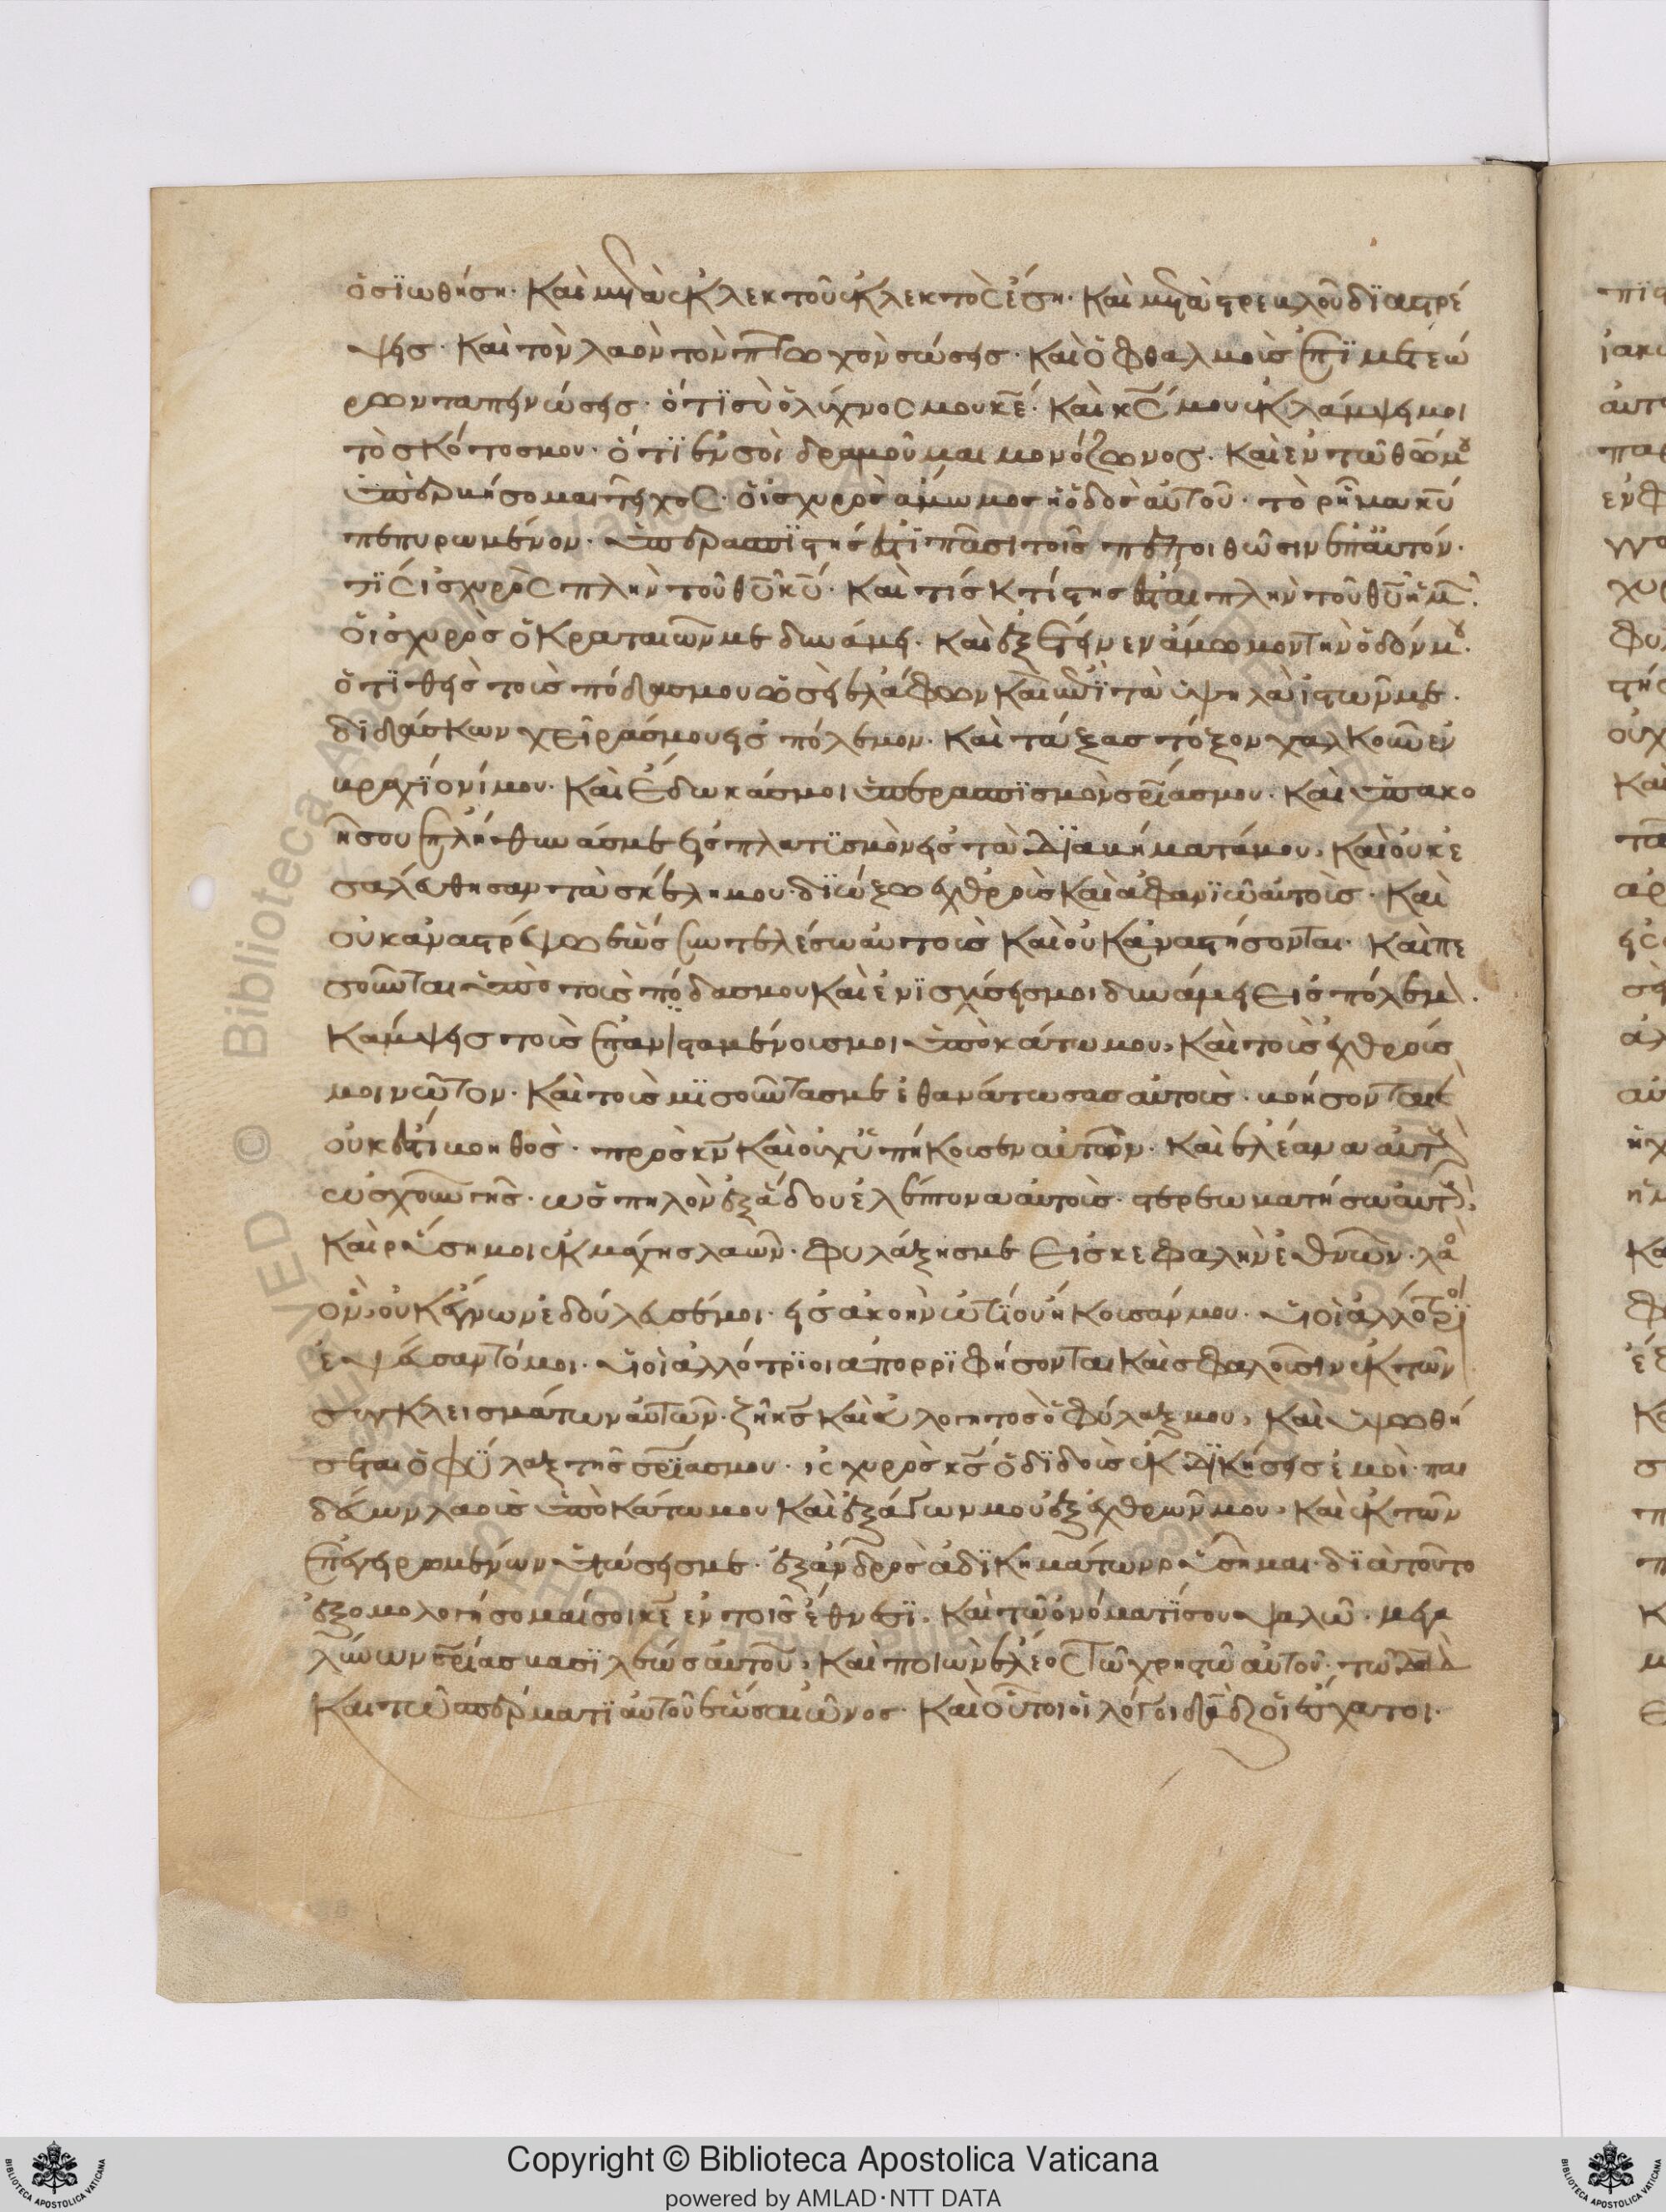 ὁσϊωθήση· Καὶ μετὰ ἐκλεκτοῦ ἐκλεκτὸς ἔση· Καὶ μετὰ στρεβλοῦ δϊαστρέ
ψης· Καὶ τὸν λαὸν τὸν πτωχὸν σώσης· Καὶ ὀφθαλμοὺς ἐπῒ μετεώ
ρων ταπεινώσης· ὅτϊ σὺ ὁ λύχνος μου κε· Καὶ κς μου ἐκλάμψει μοι
τὸ σκότος μου· ὅτϊ ἐν σοὶ δραμοῦμαι μονόζωνος. Καὶ ἐν τῶ θω μου
ὑπερβήσομαι τεῖχος· ὁ ἰσχυρὸς ἄμωμος ἡ ὁδὸς αὐτοῦ· τὸ ρῆμα κυ
πεπυρωμένον· ὑπερασπϊστής ἐστϊ πᾶσι τοῖς πεποιθῶσιν ἐπ αὐτόν·
τϊς ἰσχυρὸς πλὴν τοῦ θυ κυ· Καὶ τίς κτίστης ἔσται πλὴν τοῦ θυ ἡμῶν·
ὁ ἰσχυρὸς ὁ κραταιῶν με δυνάμει· Καὶ ἐξέτεινεν ἄμωμον τὴν ὁδόν μου·
ὁ τϊθεὶς τοὺς πόδας μου ὡσεὶ ἐλάφων Καὶ ἐπῒ τὰ ὑψηλὰ ἱστῶν με·
δϊδάσκων χεῖράς μου εἰς πόλεμον· Καὶ τάξας τόξον χαλκοῦν ἐν
βραχϊόνί μου· Καὶ ἔδωκάς μοι ὑπερασπϊσμὸν σρίας μου· Καὶ ὑπακο
ή σου ἐπλήθυνάς με εἰς πλατϊσμὸν εἰς τὰ δϊαβήματά μου, Καὶ οὐκ ἐ
σαλεύθησαν τὰ σκέλη μου· δϊώξω ἐχθροὺς Καὶ ἀφανϊῶ αὐτοὺς· Καὶ
οὐκ ἀναστρέψω ἕως συντελέσω αὐτοὺς Καὶ οὐκ ἀναστήσονται· Καὶ πε
σοῦνται ὑπὸ τοὺς πόδας μου Καὶ ἐνϊσχύσεις μοι δυνάμει εἰς πόλεμον·
Κάμψεις τοὺς ἐπανϊσταμένους μοι ὑποκάτω μου, Καὶ τοὺς ἐχθρούς
μοι νῶτον· Καὶ τοὺς μϊσοῦντας με ἐθανάτωσας αὐτοὺς· βοήσονται
οὐκ ἔστϊ βοηθὸς· πρὸς κν Καὶ οὐχ ὑπήκουσεν αὐτῶν· Καὶ ἐλέανα αὐτοὺς
ὡς χοῦν γῆς· ὡς πηλὸν ἐξόδου ἐλέπτυνα αὐτοὺς· στερεωματήσω αὐτοὺς,
Καὶ ρύση μοι ἐκ μάχης λαῶν· φυλάξης με εἰς κεφαλὴν ἐθνῶν· λαὸς
ὃν οὐκ ἔγνων ἐδούλευσέ μοι· εἰς ἀκοὴν ὠτϊου ἤκουσάν μου· υἱοὶ ἀλλότρϊοι
ἐψεύσαντό μοι· υἱοὶ ἀλλότρϊοι ἀπορρϊφήσονται Καὶ σφαλοῦσιν ἐκ τῶν
συγκλεισμάτων αὐτῶν· ζῆ κς Καὶ εὐλογητὸς ὁ φύλαξ μου, Καὶ ὑψωθή
σεται ὁ φύλαξ τῆς σρίας μου· ἰσχυρὸς κς ὁ δϊδοὺς ἐκδϊκήσεις ἐμοὶ· παι
δεύων λαοὺς ὑποκάτω μου Καὶ ἐξάγων μου ἐξ ἐχθρῶν μου, Καὶ ἐκ τῶν
ἐπεγειρομένων ὑψώσεις με· ἐξ ἀνδρὸς ἀδϊκημάτων ρύση μαι· δϊὰ τοῦτο
ἐξομολογήσομαί σοι κε ἐν τοῖς ἔθνεσϊ. Καὶ τῶ ὀνόματί σου ψαλῶ· μεγα
λύνων σρίας βασϊλέως αὐτοῦ, Καὶ ποιῶν ἔλεος τῶ χρηστῶ αὐτοῦ· τῶ δαδ
Καὶ τῶ σπέρματϊ αὐτοῦ ἕως αἰῶνος· Καὶ οὗτοι οἱ λόγοι δαδ οἱ ἔσχατοι·
Copyright © Biblioteca Apostolica Vaticana
powered by AMLAD·NTT DATA